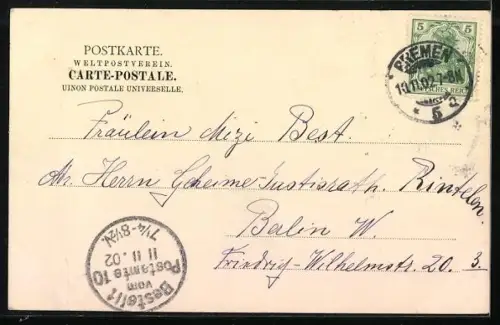 POSTKARTE.
WELTPOSTVEREIN.
CARTE-POSTALE.
UINON POSTALE UNIVERSELLE.
5 5
DEUTSCHES REICH
BREMEN
10.11.02.7-8N.
* 5 a *
Fräulein Mizi Best.
Adr. Herrn Geheime-Justisrath. Rintelen.
Berlin W.
Friedrig-Wilhelmstr. 20. 3.
Bestellt
vom
Postamte 10
11 11 . 02
7¼-8½N.